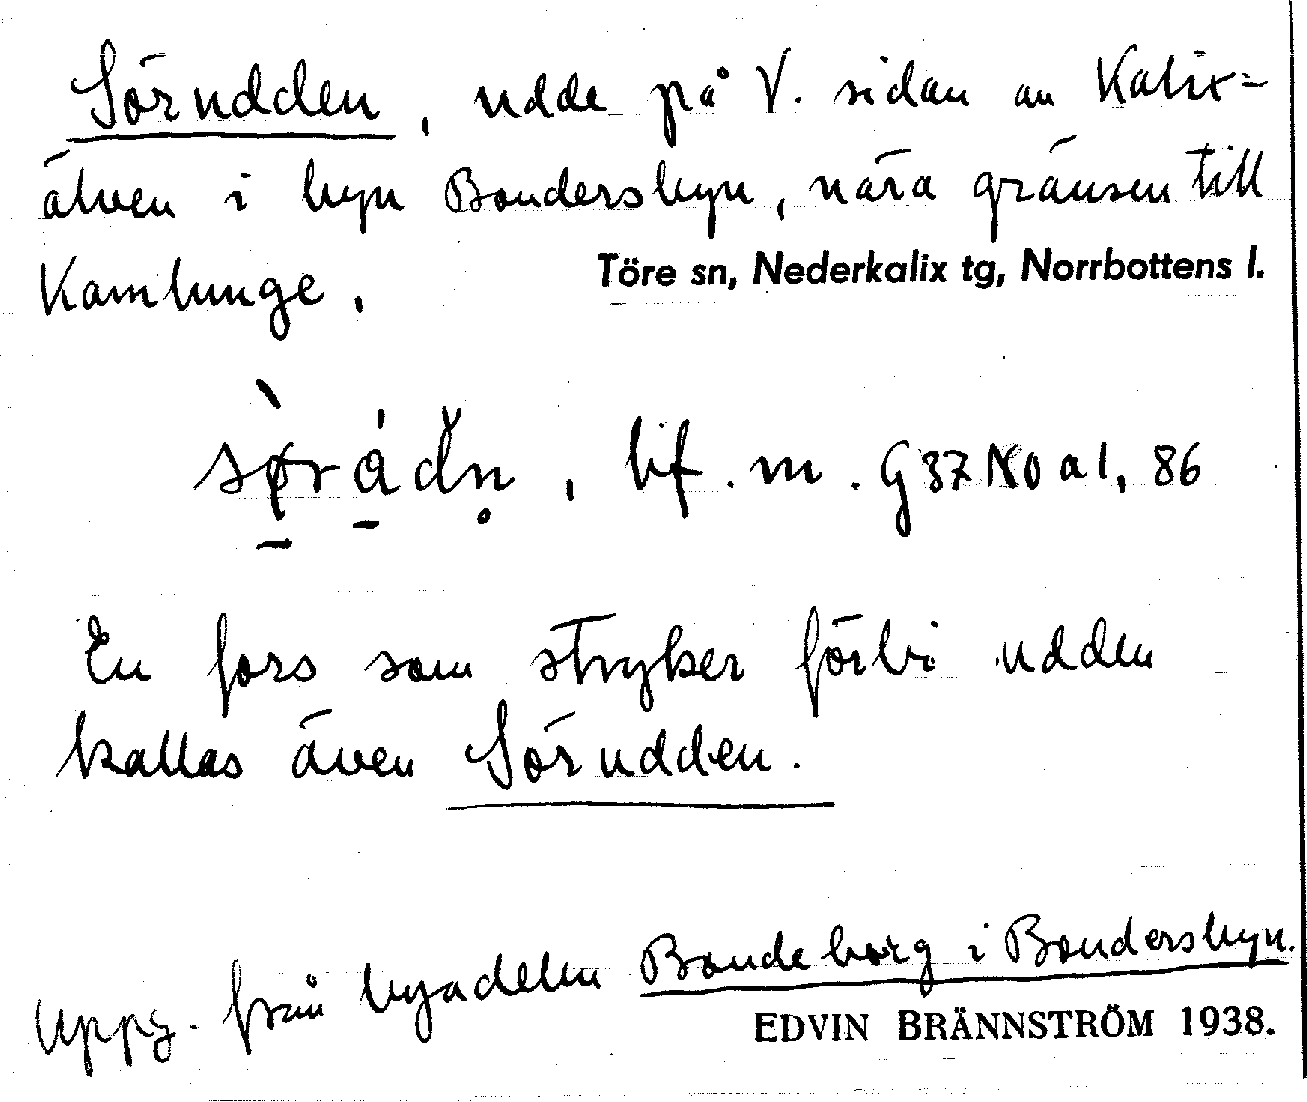 Sörudden, udde på V. sidan av Kalix-
älven i byn Bondersbyn, nära gränsen till
Kamlunge.
Töre sn, Nederkalix tg, Norrbottens l.
bf. m. G 37 NO a 1, 86
En fors som stryker förbi udden
kallas även Sörudden.
Uppg. från byadelen Bondeborg i Bondersbyn.
EDVIN BRÄNNSTRÖM 1938.